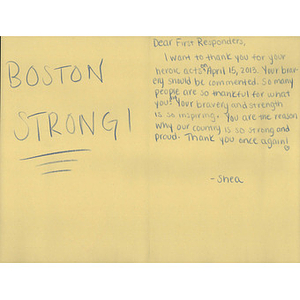 BOSTON
STRONG!
Dear First Responders,
I want to thank you for your
heroic acts on April 15, 2013. Your brav-
ery should be commented. So many
people are so thankful for what
you Your bravery and strength
is so inspiring. You are the reason
why our country is so strong and
proud. Thank you once again!
-Shea